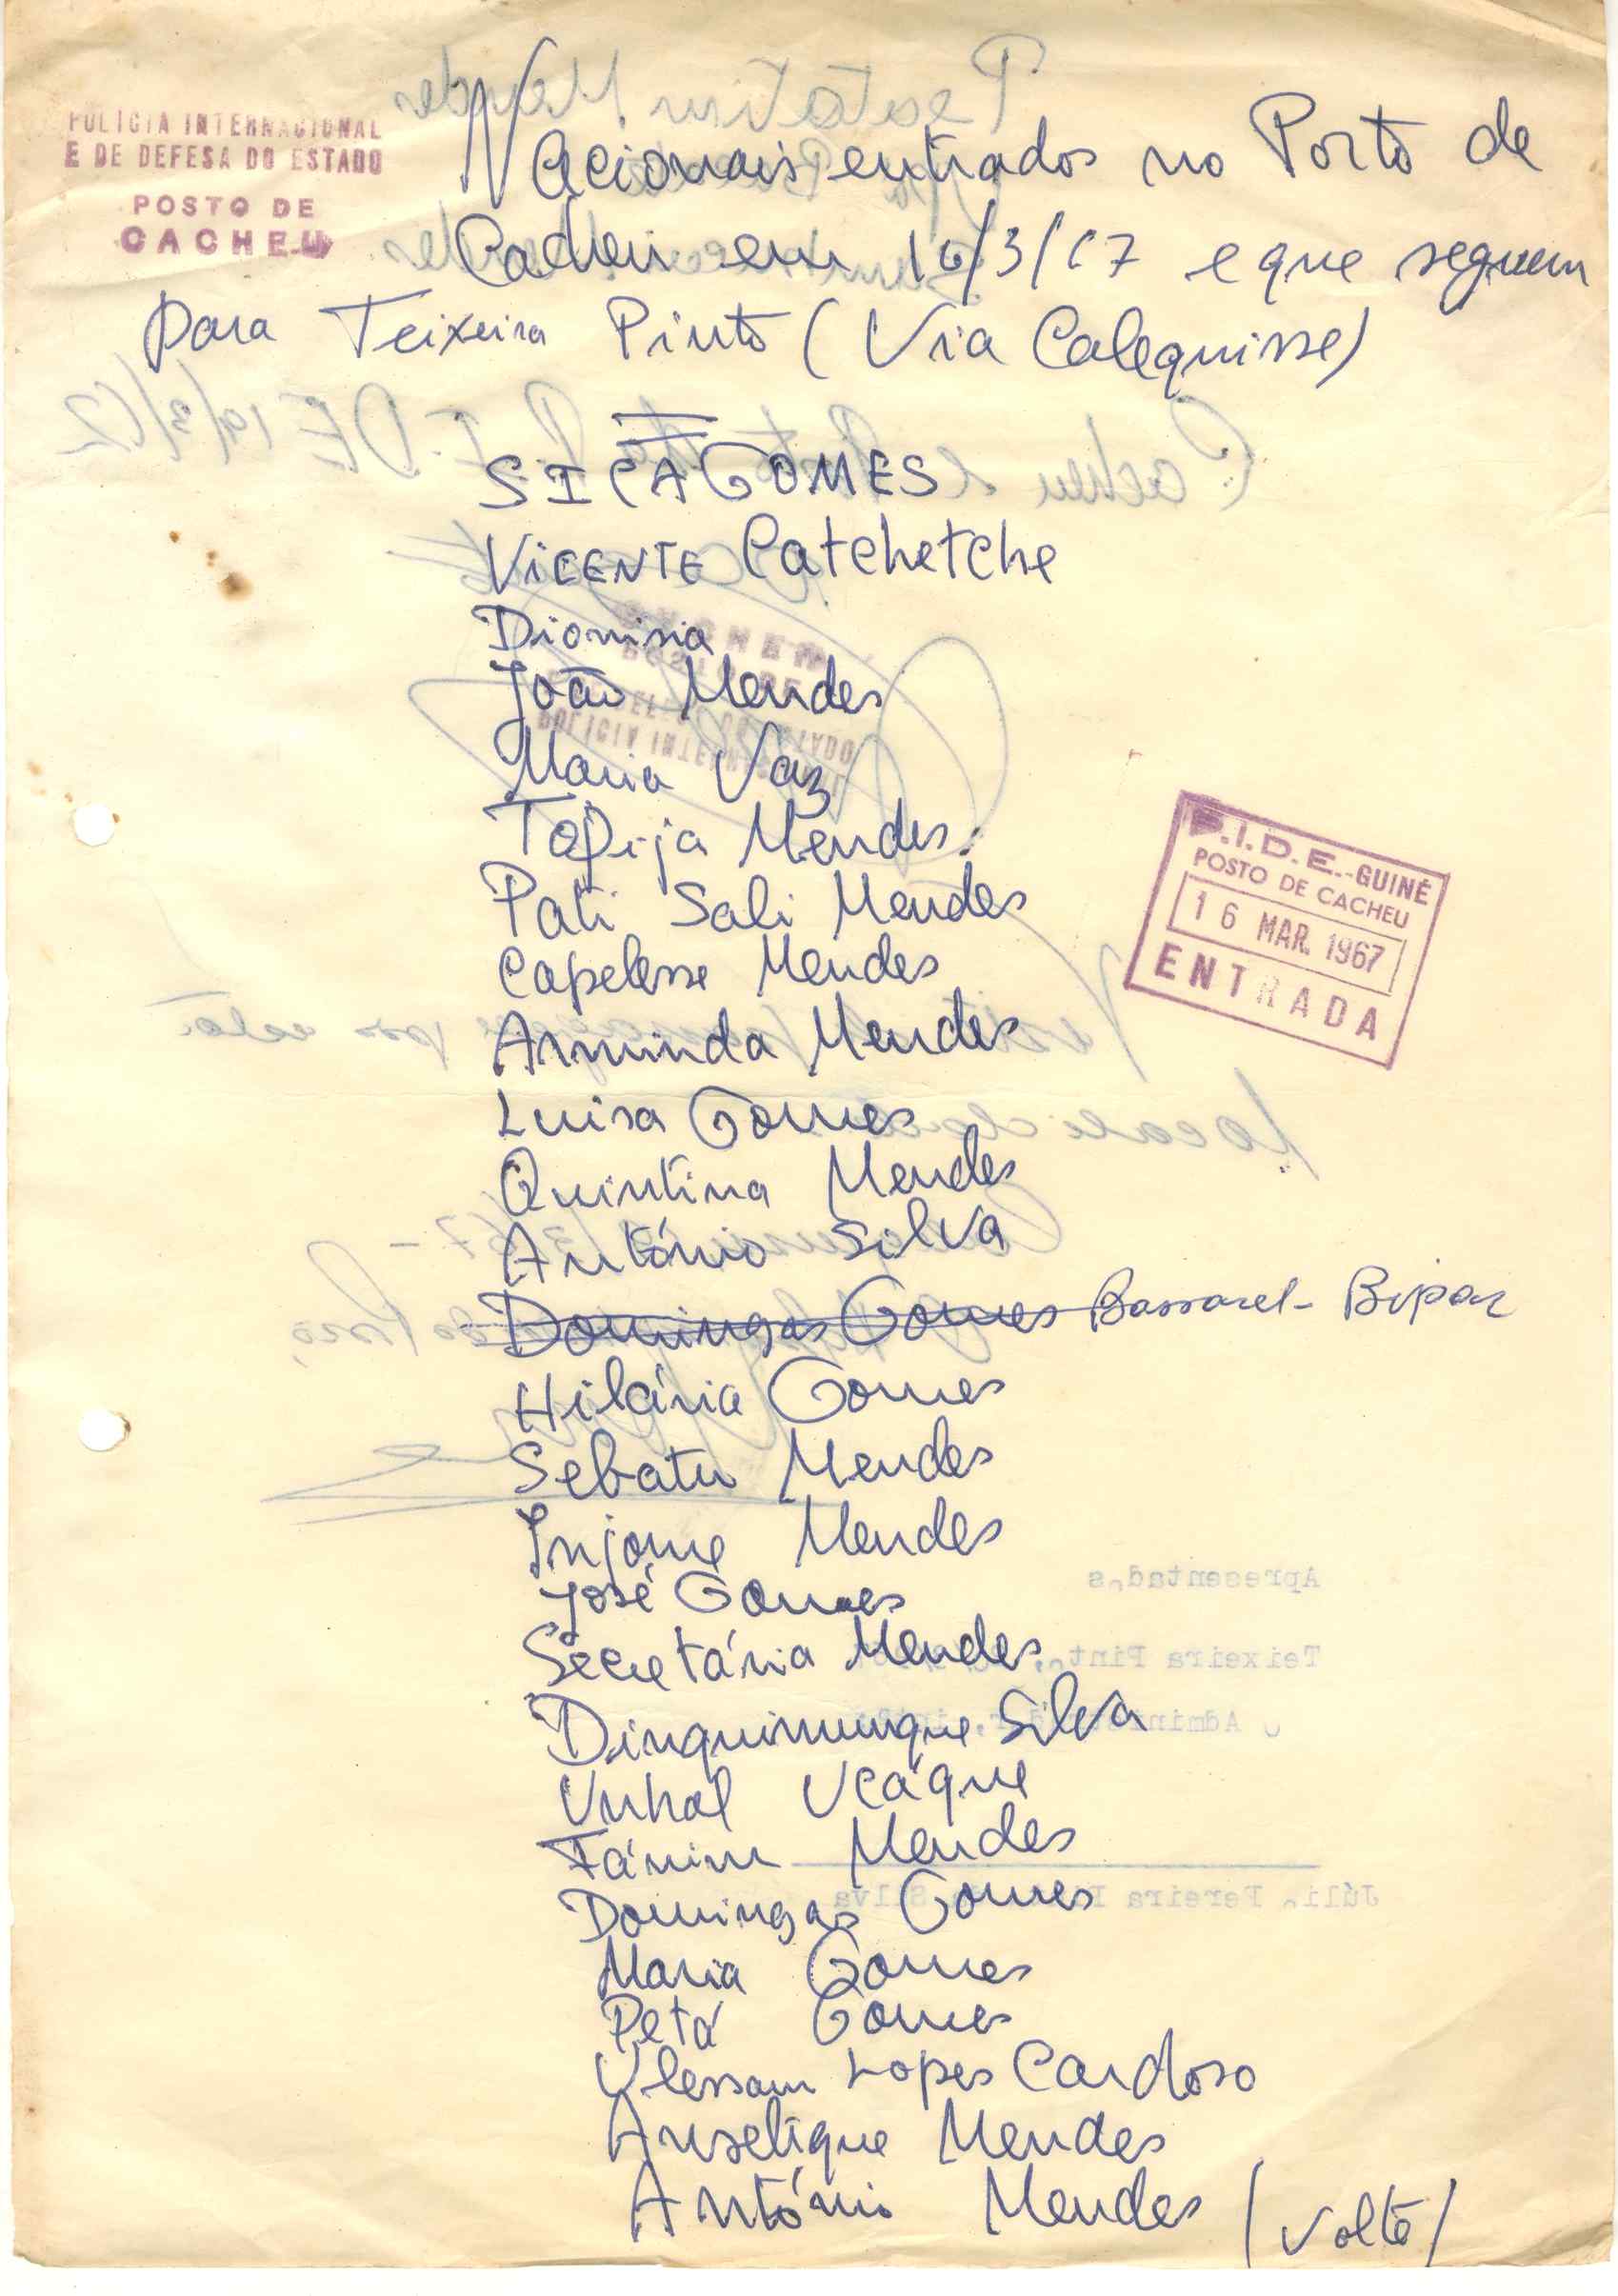 POLÍCIA INTERNACIONAL
E DE DEFESA DO ESTADO
POSTO DE
CACHEU
Nacionais entrados no Porto de
Cacheu em 16/3/67 e que seguem
para Teixeira Pinto (Via Calequisse)
SICA GOMES
VICENTE Catchetche
Dionisia
João Mendes
Maria Vaz
Topija Mendes
Pati Sali Mendes
Capelesse Mendes
Arminda Mendes
Luisa Gomes
Quintina Mendes
António Silva
Domingas Gomes Bassarel - Bipar
Hilária Gomes
Sebatu Mendes
Injome Mendes
José Gomes
Secretária Mendes
Dinquimunque Silva
Unhal Ucáque
Fánim Mendes
Domingas Gomes
Maria Gomes
Petá Gomes
Ulessam Lopes Cardoso
Anselique Mendes
António Mendes (Volte)
P.I.D.E.-GUINÉ
POSTO DE CACHEU
16 MAR. 1967
ENTRADA